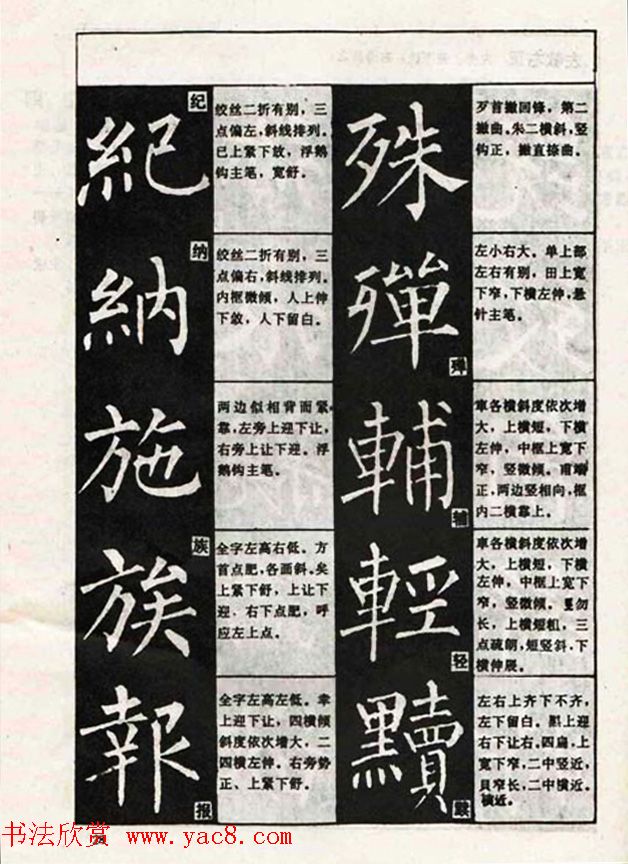 紀
纪
绞丝二折有别，三
点偏左，斜线排列。
已上紧下放，浮鹅
钩主笔，宽舒。
納
纳
绞丝二折有别，三
点偏右，斜线排列。
内框微倾，人上伸
下敛，人下留白。
施
两边似相背而紧
靠，左旁上迎下让，
右旁上让下迎。浮
鹅钩主笔。
族
族
全字左高右低。方
首点肥，各面斜。矣
上紧下舒，上让下
迎．右下点肥，呼
应左上点。
報
报
全字左高左低。幸
上迎下让，四横倾
斜度依次增大，二
四横左伸。右旁势
正、上紧下舒。
殊
歹首撇回锋，第二
撇曲。朱二横斜，竖
钩正，撇直捺曲。
殫
殚
左小右大。单上部
左右有别，田上宽
下窄，下横左伸，悬
针主笔。
輔
辅
車各横斜度依次增
大，上横短，下横
左伸，中框上宽下
窄，竖微倾。甫端
正，两边竖相向，框
内二横靠上。
輕
轻
車各横斜度依次增
大，上横短，下横
左伸，中框上宽下
窄，竖微倾。勿
长，上横短粗，三
点疏朗，短竖斜，下
横伸展。
黷
黩
左右上齐下不齐，
左下留白。黑上迎
右下让右。四扁，上
宽下窄，二中竖近，
貝窄长，二中横近。
横近。
书法欣赏 www.yac8.com